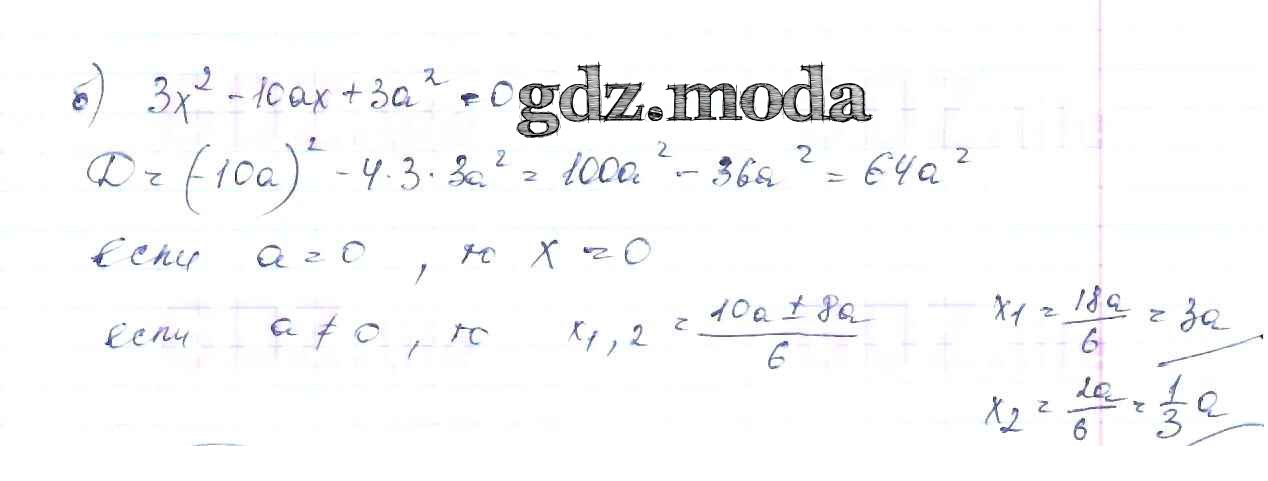 б) 3x² - 10ax + 3a² = 0 gdz.moda
D = (-10a)² - 4·3·3a² = 100a² - 36a² = 64a²
если a = 0, то x = 0
если a ≠ 0, то x₁,₂ = (10a ± 8a)/6 x₁ = 18a/6 = 3a
x₂ = 2a/6 = 1/3 a